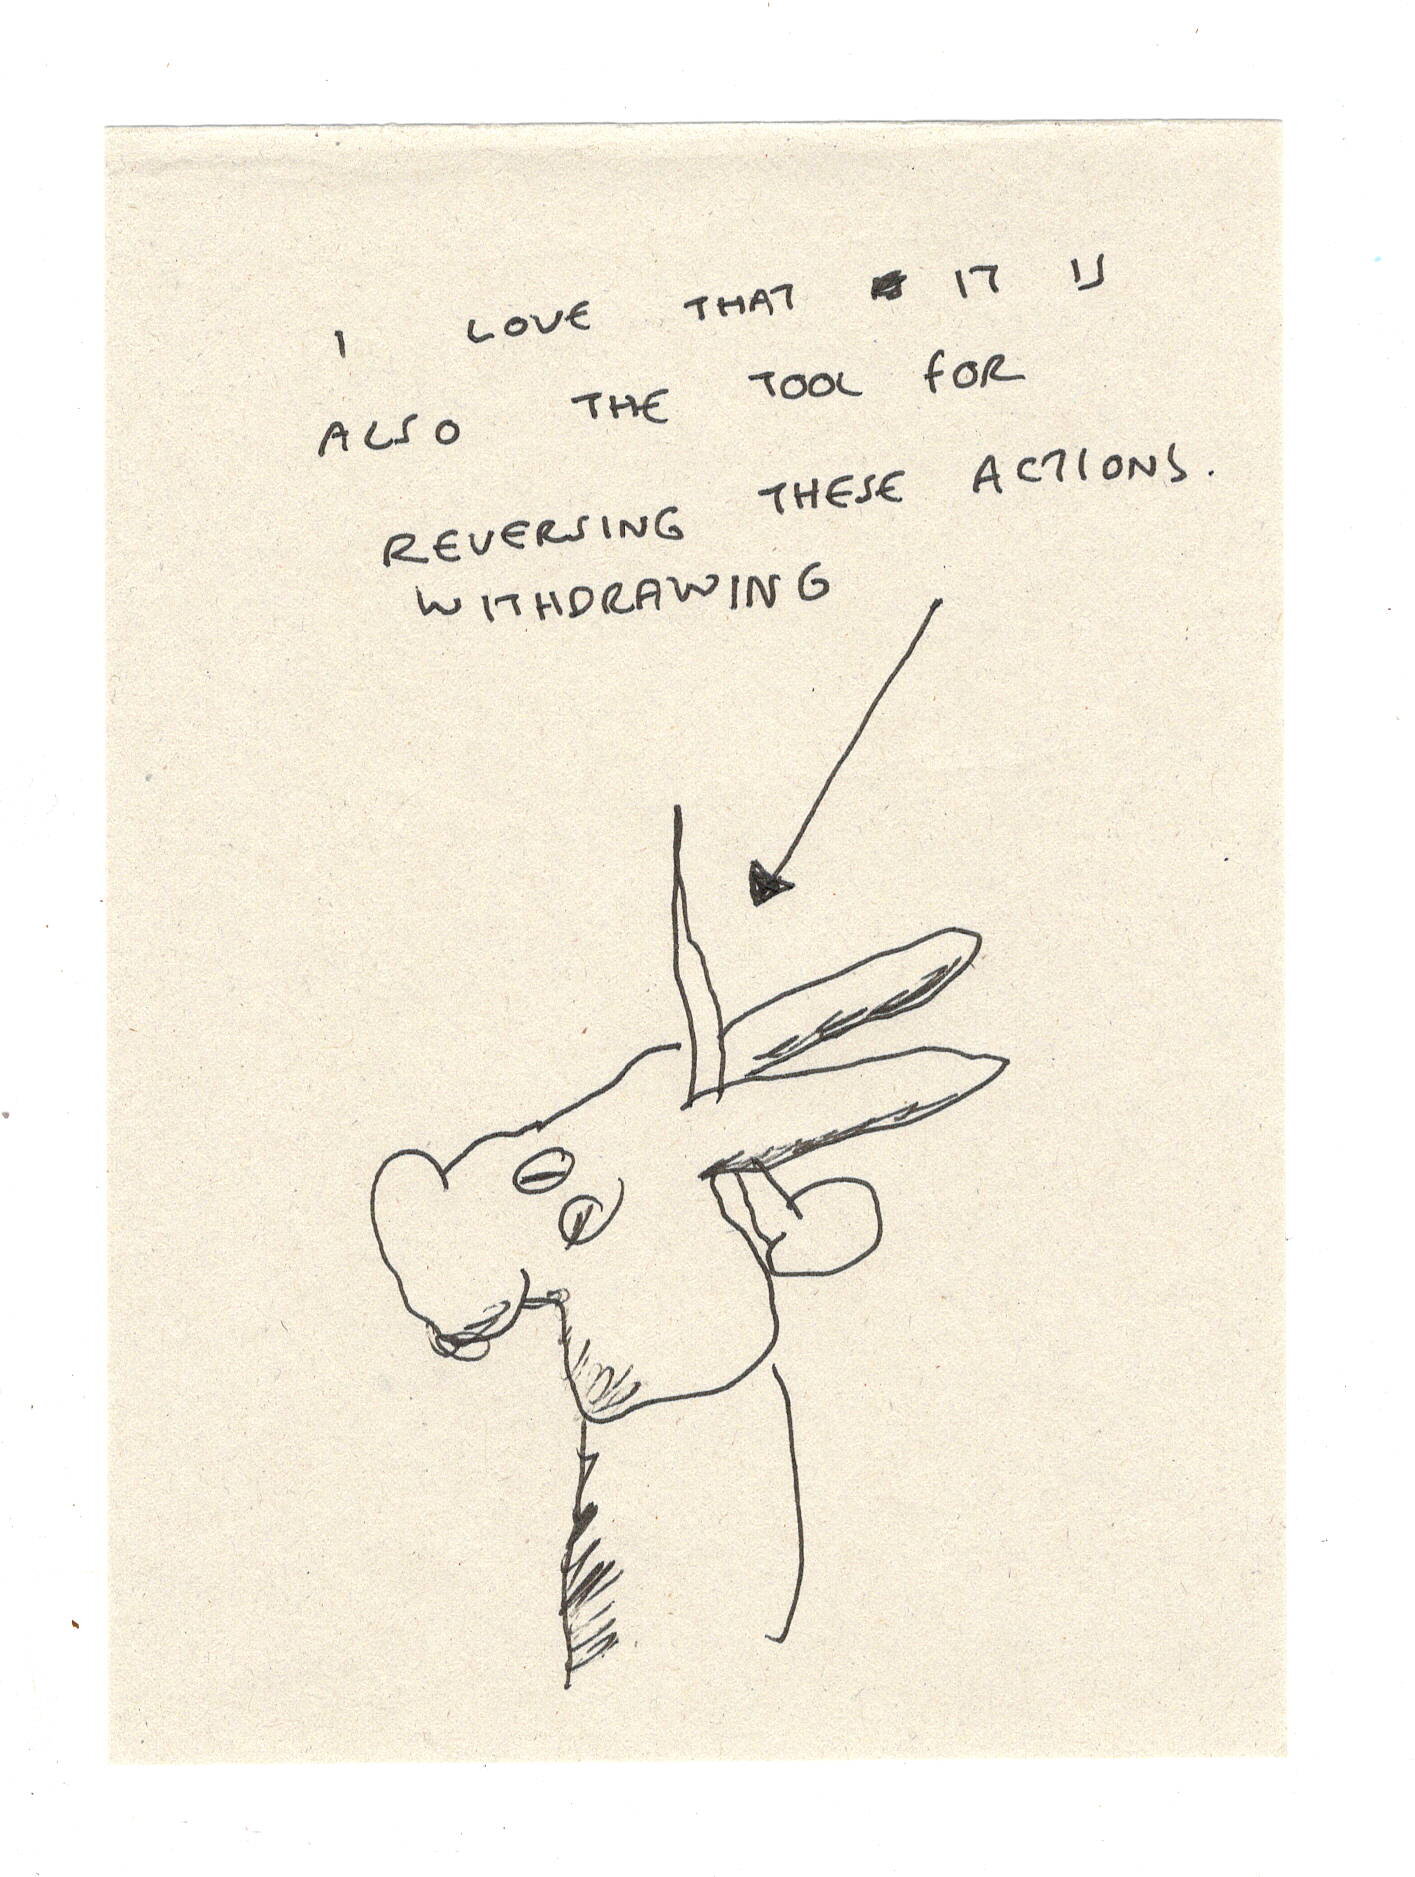 I LOVE THAT IT IS
ALSO THE TOOL FOR
REVERSING THESE ACTIONS.
WITHDRAWING